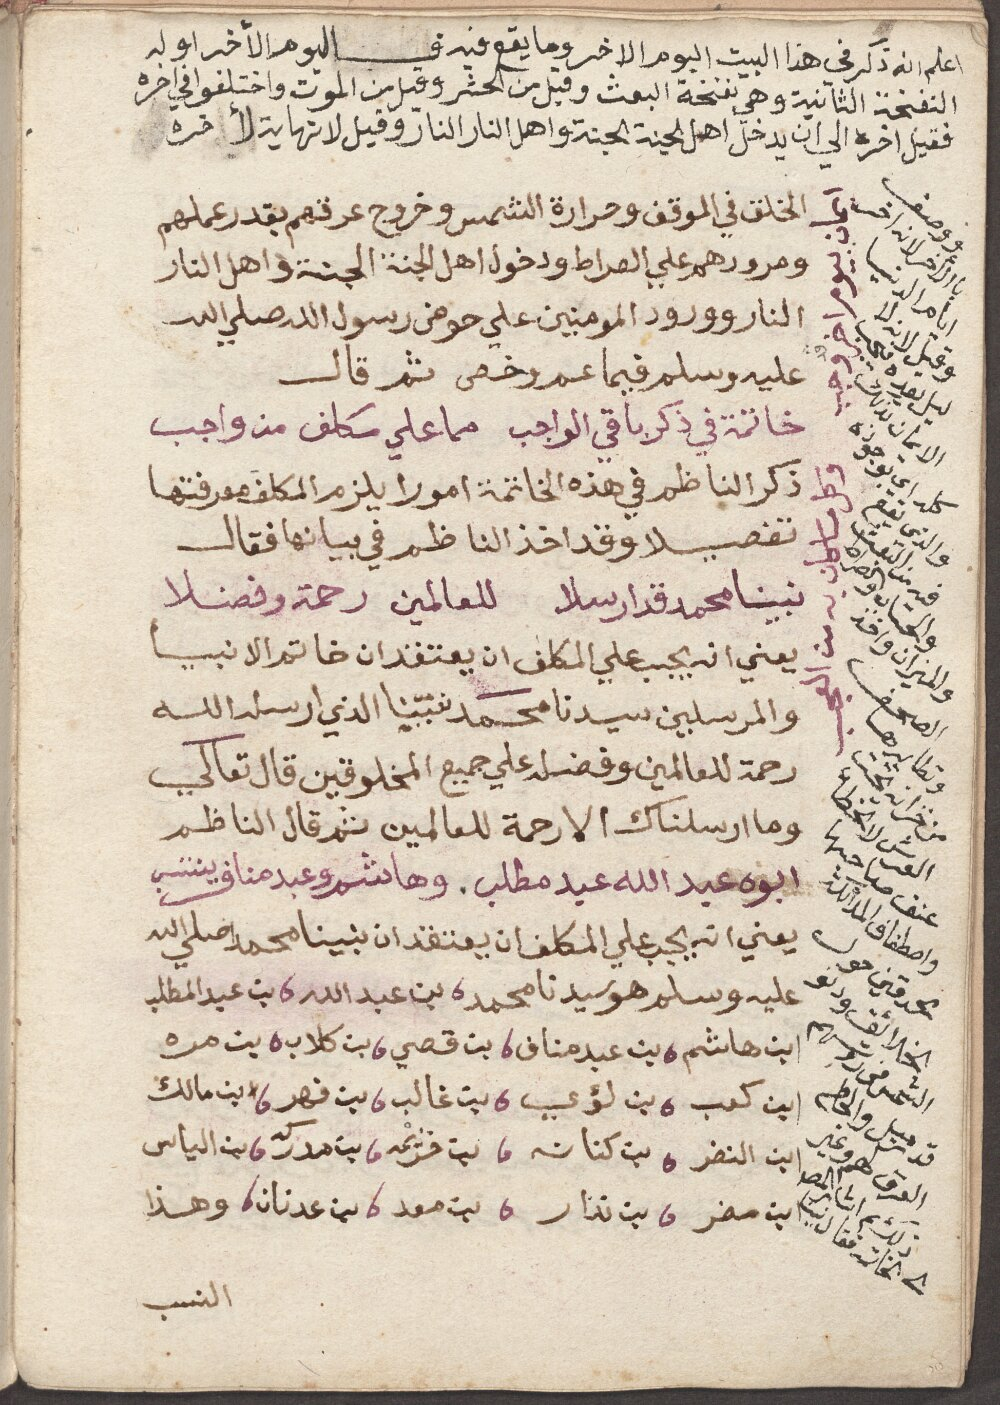 اعلم انه ذكر في هذا البيت اليوم الاخر وما يقع فيه فـــاليوم الأخر اوله
النفخة الثانية وهي نفخة البعث وقيل من الحشر وقيل من الموت واختلفوا في اخره
فقيل اخره الي ان يدخل اهل الجنة الجنة واهل النار النار وقيل لا نهاية لأخره
الخلق في الموقف وحرارة الشمس وخروج عرقهم بقدر عملهم
ومرورهم علي الصراط ودخول اهل الجنة الجنة واهل النار
النار وورود المومنين علي حوض رسول الله صلي الله
عليه وسلم فيما عم وخص ثم قال
خاتمة في ذكر باقي الواجب مما علي مكلف من واجب
ذكر الناظم في هذه الخاتمة امورا يلزم المكلف معرفتها
تفصيلا وقد اخذ الناظم في بيانها فقال
نبينا محمد قد ارسلا للعالمين رحمة وفضلا
يعني انه يجب علي المكلف ان يعتقد ان خاتم الانبيا
والمرسلين سيدنا محمد نبينا الذي ارسله الله
رحمة للعالمين وفضله علي جميع المخلوقين قال تعالي
وما ارسلناك الا رحمة للعالمين ثم قال الناظم
ابوه عبد الله عبد مطلب . وهاشم وعبد مناف ينتسب
يعني انه يجب علي المكلف ان يعتقد ان نبينا محمدا صلي الله
عليه وسلم هو سيدنا محمد بن عبد الله بن عبد المطلب
ابن هاشم بن عبد مناف بن قصي بن كلاب بن مره
ابن كعب بن لؤي بن غالب بن فهر بن مالك
ابن النضر بن كنانه بن خزيمه بن مدركه بن الياس
ابن مضر بن نزار بن معد بن عدنان وهذا
النسب
ايمان بيوم اخر وجب
وكل ما كان به من العجب
ووصف
بالأخر لانه اخر
ايام الدنيا
وقيل لانه لا
ليل بعده فيجب
الايمان بذلك
والذي يقع
فيه من البعث
والحساب والصراط
والميزان واخذ
الصحف
وتطايرها
من خزانة تحت
العرش
عنق صاحبها
واصطفاف الملائكة
محدقين حول
الخلائق ودنو
الشمس من روسهم
قدر ميل
العرق